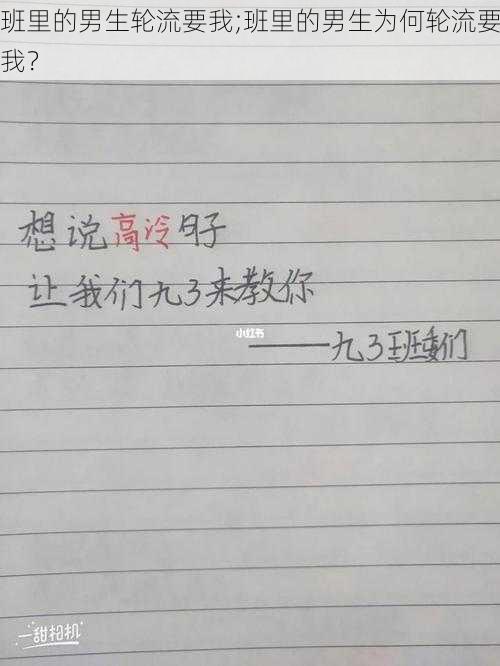 班里的男生轮流要我;班里的男生为何轮流要
我？
想说高冷句子
让我们九3来教你
小红书
——九3班委们
一甜相机